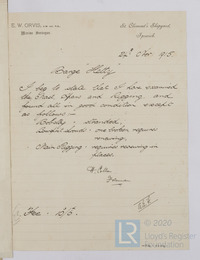 E. W. ORVIS,
Marine Surveyor.
St. Clement's Shipyard,
Ipswich
22nd Nov. 1915.
Barge "Hetty"
I beg to state that I have examined
the Mast, Spars and Rigging, and
found all in good condition except
as follows :-
Bobstay - stranded,
one broken requires
renewing.
Main Rigging - requires renewing in
places.
Fee -
© 2020
Lloyd's Register
Foundation
LR